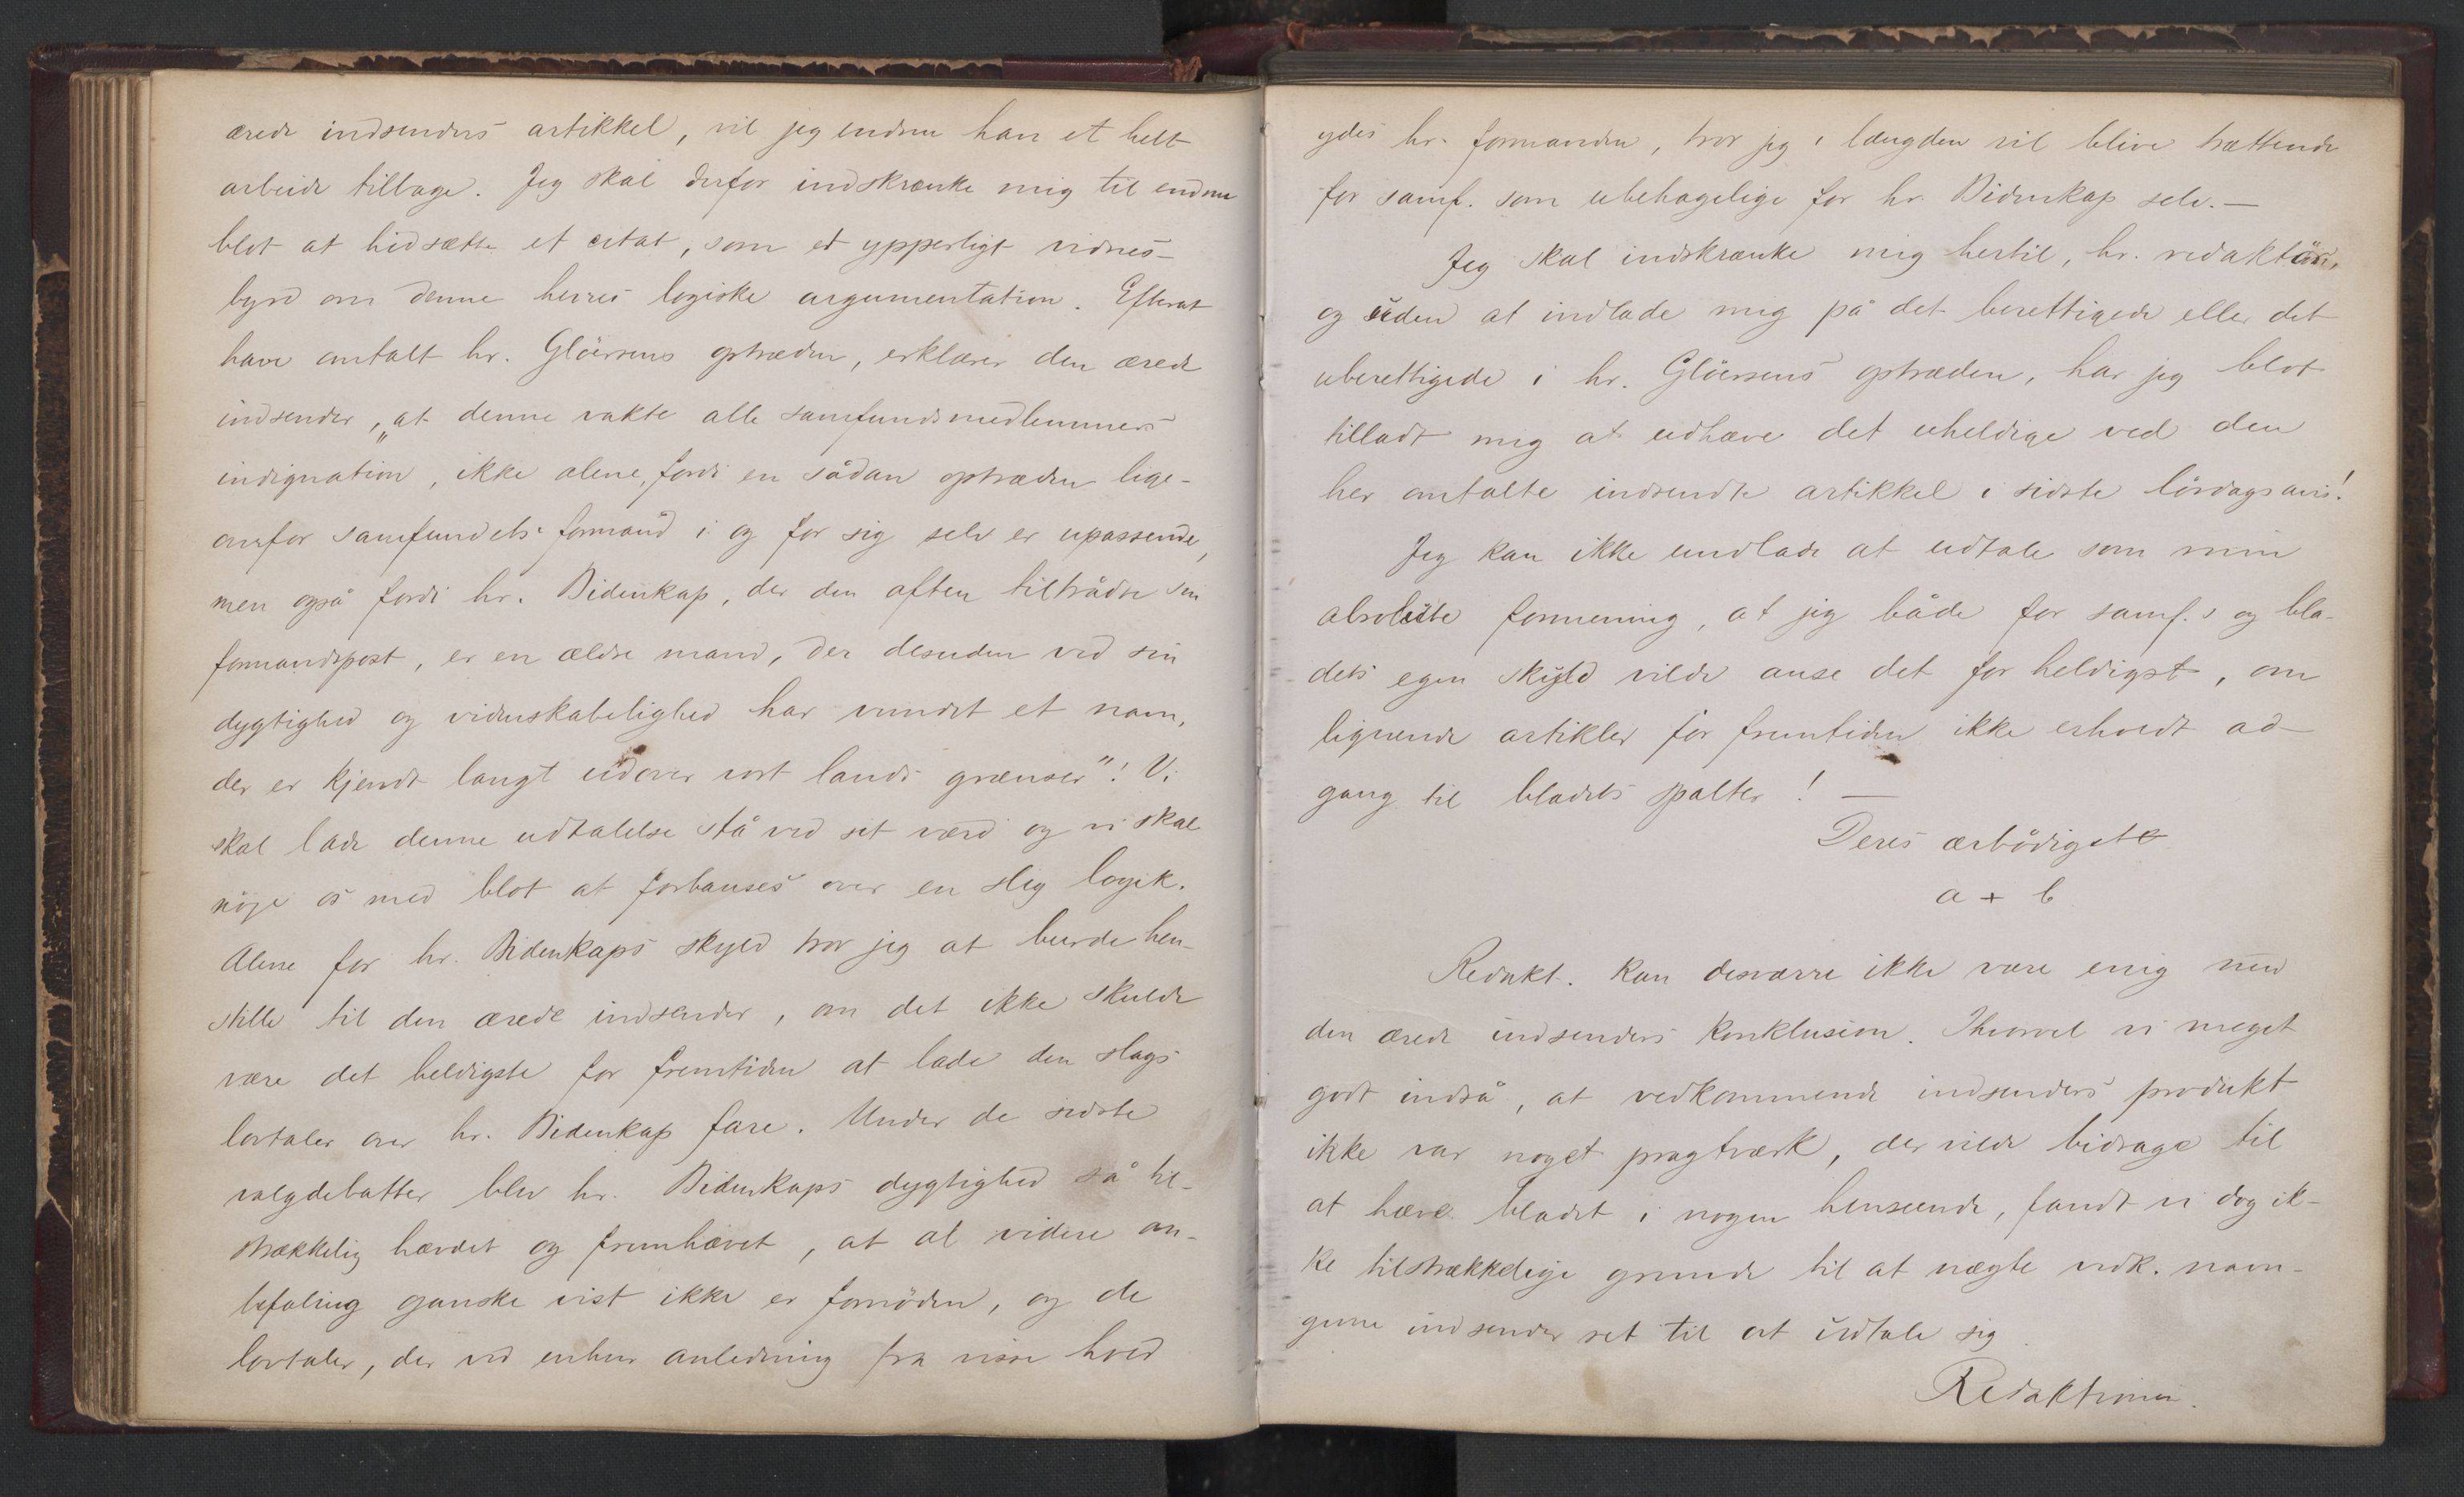 ærede indsenders artikkel, vil jeg endnu have et helt
arbeide tilbage. Jeg skal derfor indskrænke mig til endnu
blot at hidsætte et citat, som et ypperligt vidnes-
byrd om denne herres logiske argumentation. Efterat
have omtalt hr. Glöersens optræden, erklærer den ærede
indsender, „at denne vakte alle samfundsmedlemmers
indignation, ikke alene, fordi en sådan optræden lige-
overfor samfundets formand i og for sig selv er upassende,
men også fordi hr. Bidenkap, der den aften tiltrådte sin
formandspost, er en ældre mand, der desuden ved sin
dygtighed og videnskabelighed har vundet et navn,
der er kjendt langt udover vort lands grænser"! Vi
skal lade denne udtalelse stå ved sit værd og vi skal
nöje os med blot at forbauses over en slig logik.
Alene for hr. Bidenkaps skyld tror jeg at burde hen-
stille til den ærede indsender, om det ikke skulde
være det heldigste for fremtiden at lade den slags
lovtaler over hr. Bidenkap fare. Under de sidste
valgdebatter blev hr. Bidenkaps dygtighed så til-
strækkelig hævdet og fremhævet, at al videre an-
befaling ganske vist ikke er fornöden, og de
lovtaler, der ved enhver anledning fra visse hold
ydes hr. formanden, tror jeg i længden vil blive trættende
for samf. som ubehagelige for hr. Bidenkap selv. —
Jeg skal indskrænke mig hertil, hr. redaktör,
og uden at indlade mig på det berettigede eller det
uberettigede i hr. Glöersens optræden, har jeg blot
tilladt mig at udhæve det uheldige ved den
her omtalte indsendte artikkel i sidste lördagsavis!
Jeg kan ikke undlade at udtale som min
absolute formening, at jeg både for samf.s og bla-
dets egen skyld vilde anse det for heldigst, om
lignende artikler for fremtiden ikke erholdt ad-
gang til bladets spalter! —
Deres ærbödigste
a + b
Redakt. kan desværre ikke være enig med
den ærede indsenders konklusion. Thi vel vi meget
godt indså, at vedkommende indsenders produkt
ikke var noget pragtværk, der vilde bidrage til
at hæve bladet i nogen henseende, fandt vi dog ik-
ke tilstrækkelige grunde til at nægte vedk. navn-
givne indsender ret til at udtale sig
Redaktionen.